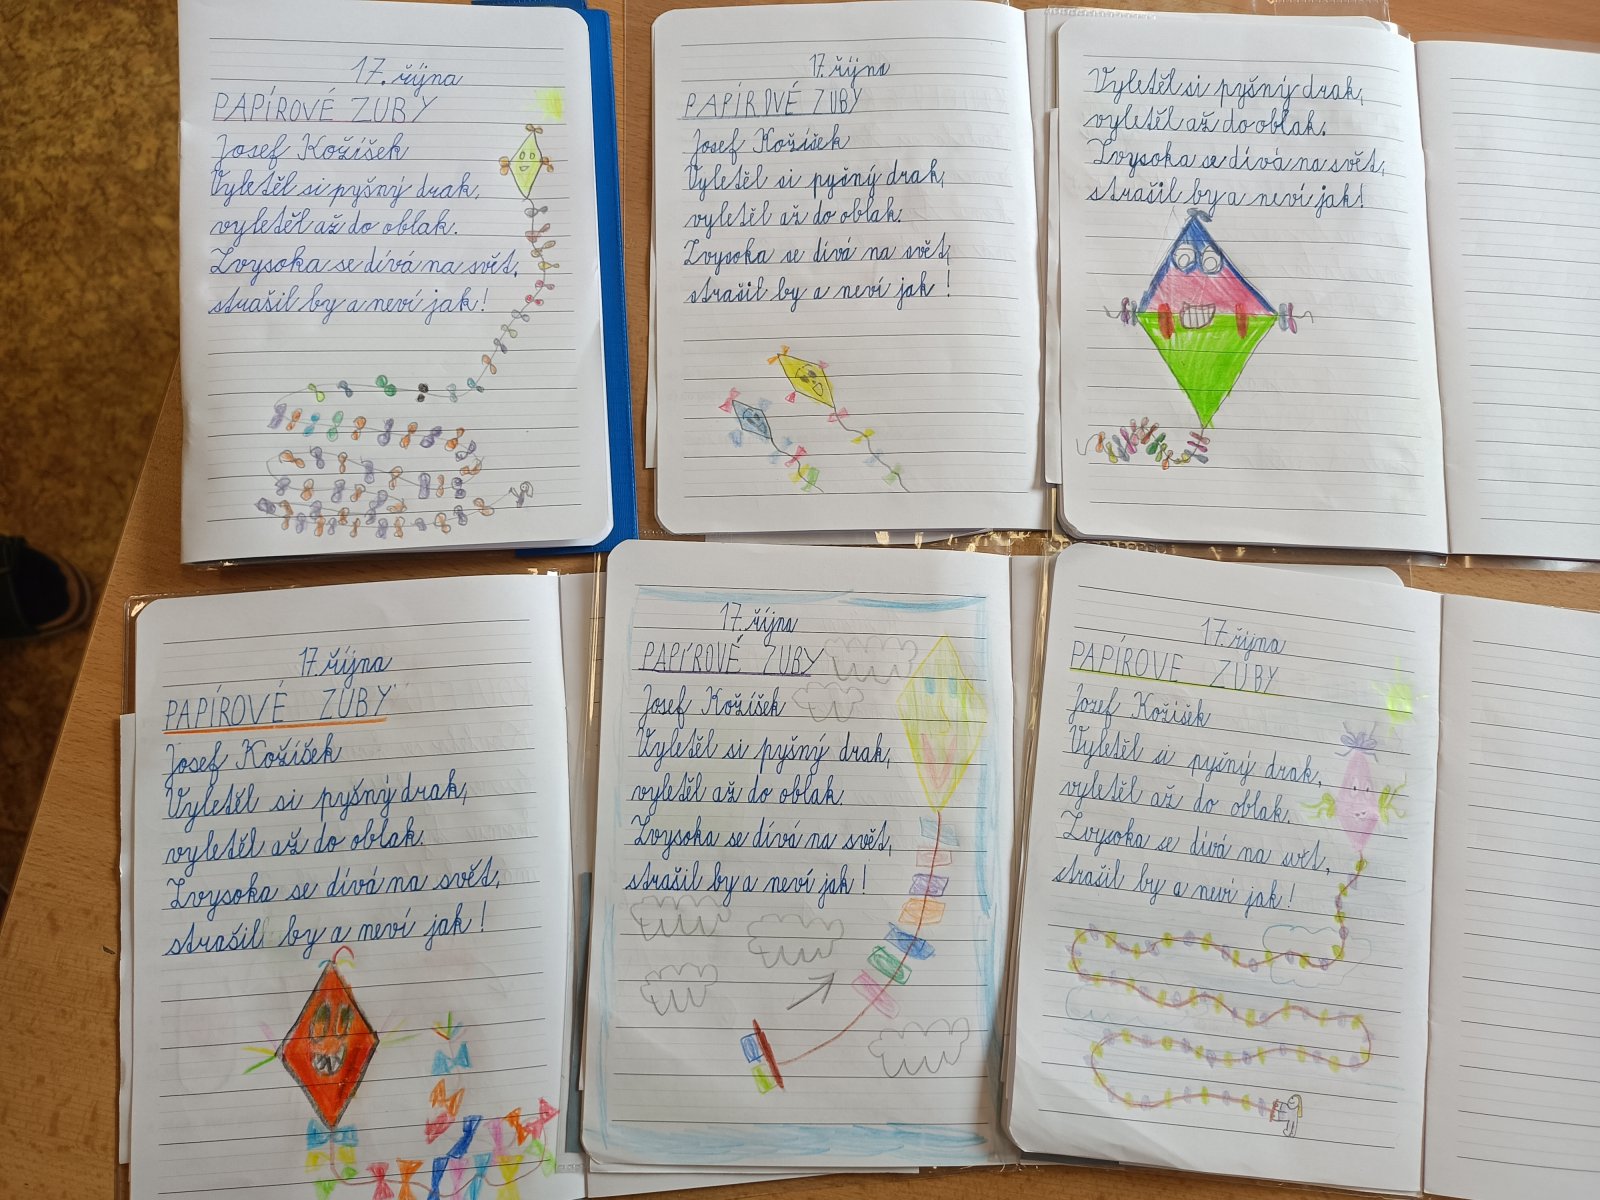 17. října
PAPÍROVÉ ZUBY
Josef Kožíšek
Vyletěl si pyšný drak,
vyletěl až do oblak.
Zvysoka se dívá na svět,
strašil by a neví jak!
17. října
PAPÍROVÉ ZUBY
Josef Kožíšek
Vyletěl si pyšný drak,
vyletěl až do oblak.
Zvysoka se dívá na svět,
strašil by a neví jak!
Vyletěl si pyšný drak,
vyletěl až do oblak.
Zvysoka se dívá na svět,
strašil by a neví jak!
17. října
PAPÍROVÉ ZUBY
Josef Kožíšek
Vyletěl si pyšný drak,
vyletěl až do oblak.
Zvysoka se dívá na svět,
strašil by a neví jak!
17. října
PAPÍROVÉ ZUBY
Josef Kožíšek
Vyletěl si pyšný drak,
vyletěl až do oblak.
Zvysoka se dívá na svět,
strašil by a neví jak!
17. října
PAPÍROVE ZUBY
Jozef Kožíšek
Vyletěl si pyšný drak,
vyletěl až do oblak.
Zvysoka se dívá na svět,
strašil by a neví jak!